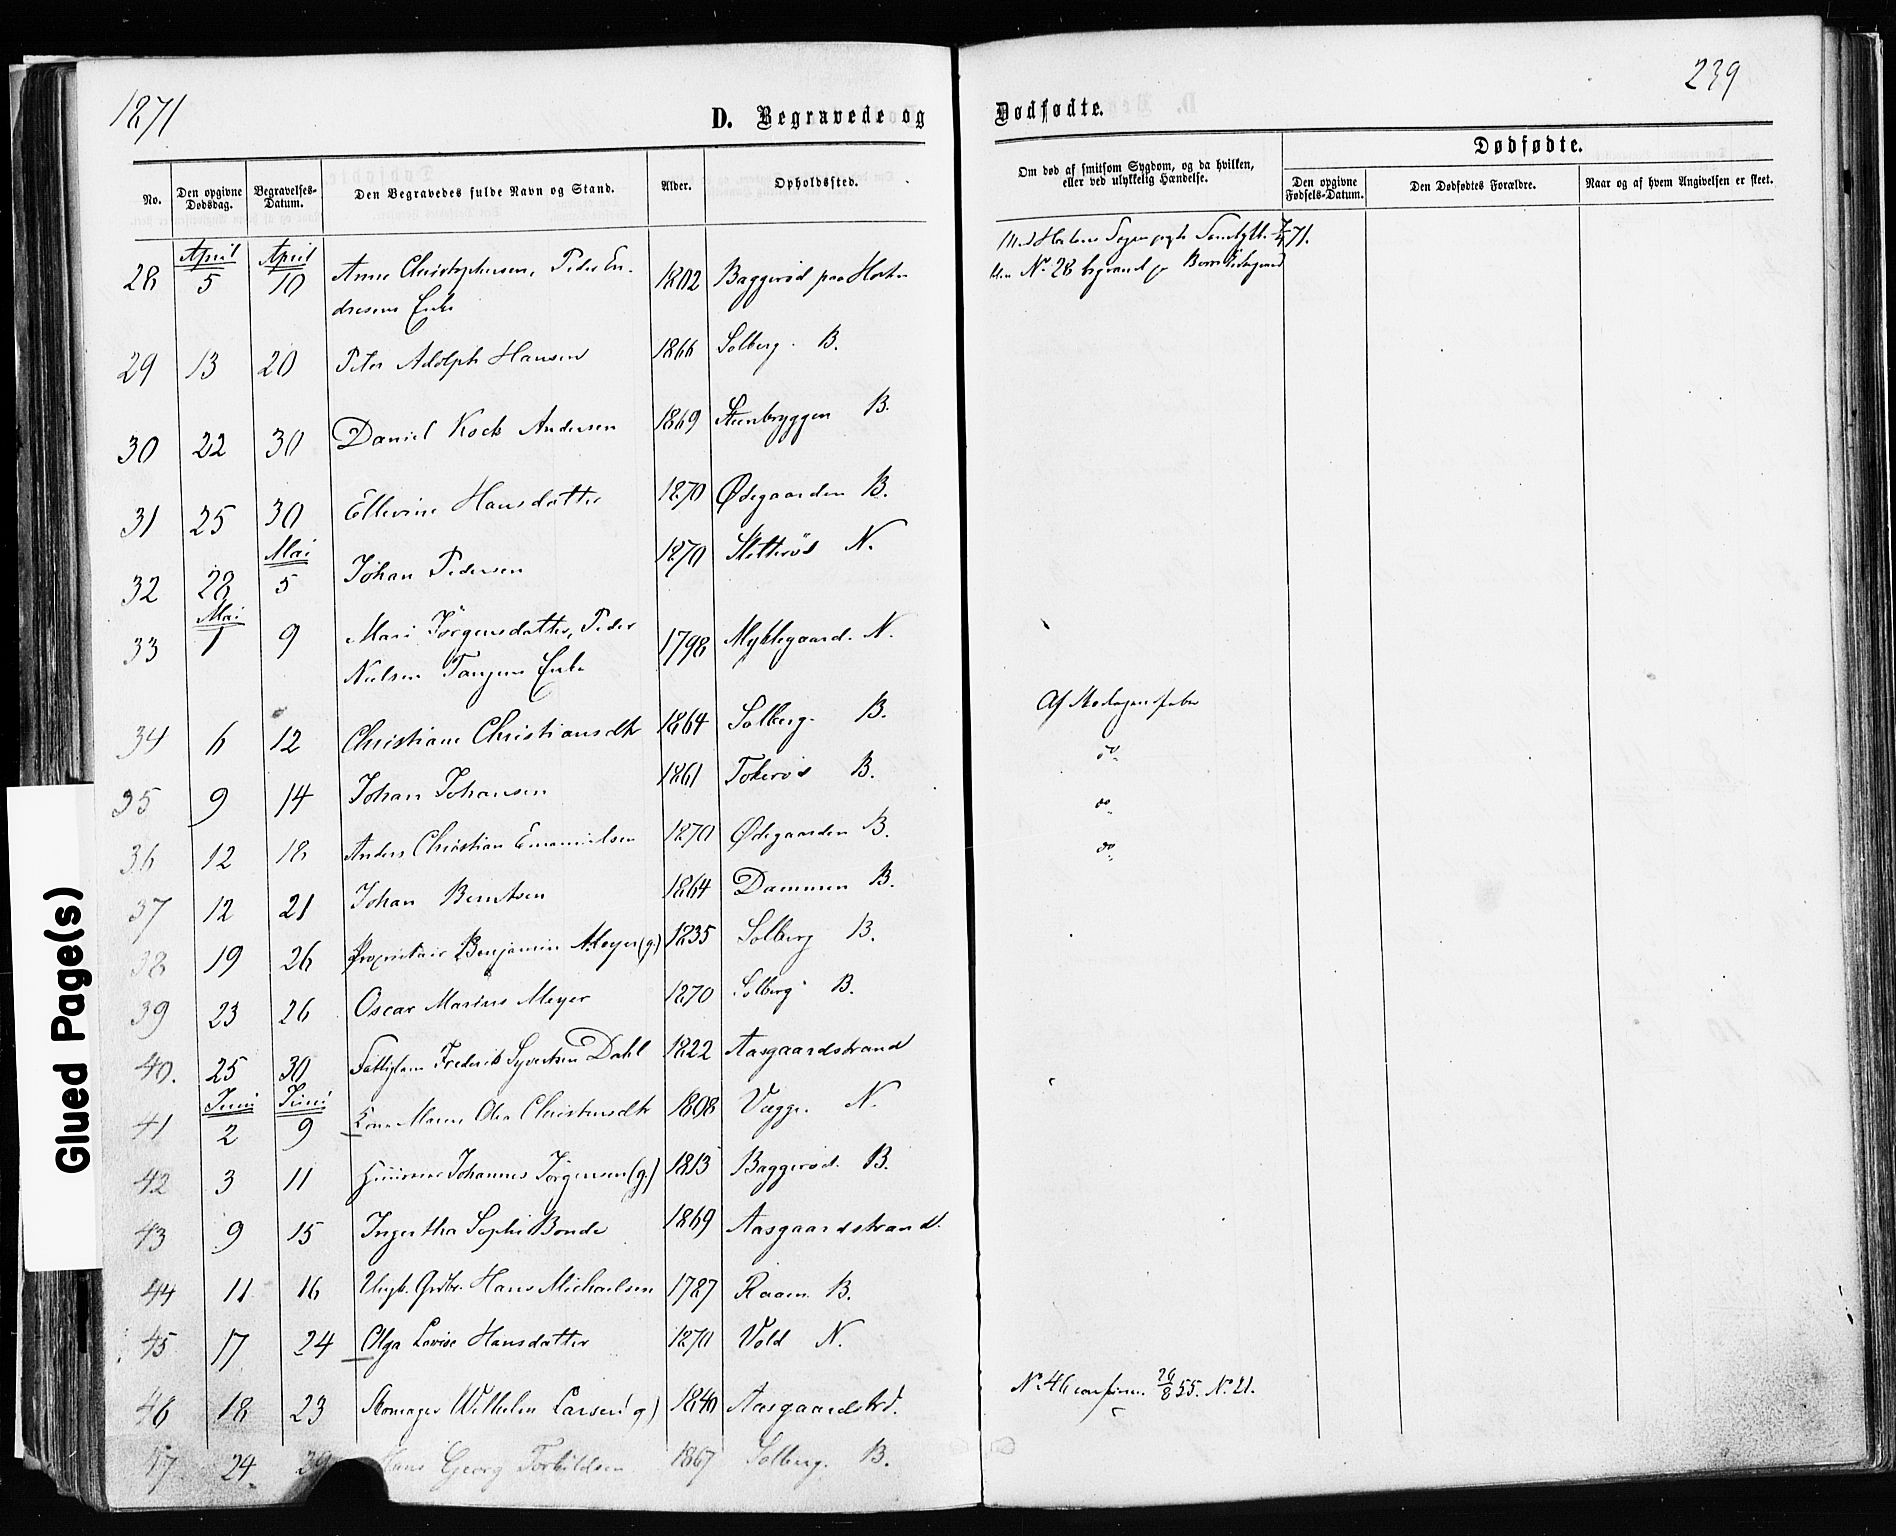 1871
239
D. Begravede og Dødfødte.
No. Den opgivne Dødsdag. Begravelses-Datum. Den Begravedes fulde Navn og Stand. Alder. Opholdssted.
Om død af smitsom Sygdom, og da hvilken, eller ved ulykkelig Hændelse.
Dødfødte.
Den opgivne Fødsels-Datum. Den Dødfødtes Forældre. Naar og af hvem Angivelsen er skeet.
April April
28 5 10 Anne Christophersen, Peder En-
dresens Enke 1802 Baggerød paa
No 28 begravet
29 13 20 Peter Adolph Hansen 1866 Solberg. B.
30 22 30 Daniel Kock Andersen 1869 Steenbryggen B.
31 25 30 Ellevine Hansdatter 1870 Ødegaarden B.
Mai
32 28 5 Johan Pedersen 1870 N.
Mai
33 1 9 Mari Jörgensdatter, Peder
Nielsen Tangens Enke 1798 Myklegaard. N.
34 6 12 Christiane Christiansdtr 1864 Solberg. B. Af
35 9 14 Johan Johansen 1861 Tokerød B. do
36 12 18 Anders Christian Emanuelsen 1870 Ødegaarden B. do
37 12 21 Johan Berntsen 1864 Dammen B. do
38 19 26 Proprietair Benjamin Meyer (g.) 1835 Solberg B.
39 23 26 Oscar Marius Meyer 1870 Solberg B.
40. 25 30 Fattiglem Frederik Syvertsen Dahl 1822 Aasgaardstrand
Juni Juni
41 2 9 Kone Maren Olea Christensdtr 1808 N.
42 3 11 Johannes Jörgensen (g.) 1813 Baggerød. B.
43 9 15 Sophie Bonde 1869 Aasgaardstrand.
44 11 16 Hans Michaelsen 1787 Raaen B.
45 17 24 Olga Lovise Hansdatter 1870 Vold N.
46 18 23 Skomager Wilhelm Larsen (g) 1840 Aasgaardstrd.
No 46 confirm. 26/8 55. No 21.
47 24. 29 Hans Georg Torkildsen 1867 Solberg. B.
Glued Page(s)